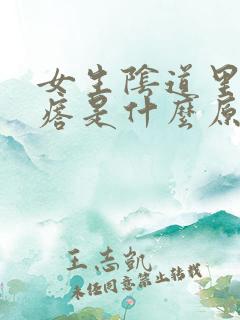 女生陰道里
痞是什麼原
王志凱
未经同意禁止转载